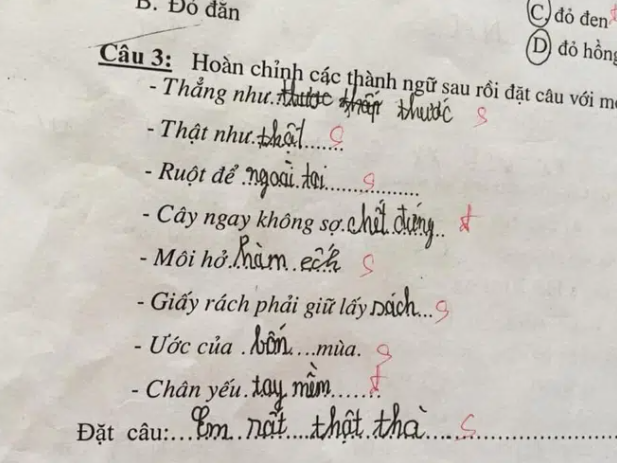 B. Đỏ đắn
C) đỏ đen
D) đỏ hồng
Câu 3: Hoàn chỉnh các thành ngữ sau rồi đặt câu với
- Thẳng như thước thước s
- Thật như thật s
- Ruột để ngoài tai s
- Cây ngay không sợ chết đứng đ
- Môi hở hàm ếch s
- Giấy rách phải giữ lấy sách s
- Ước của bốn mùa. s
- Chân yếu tay mềm đ
Đặt câu: Em rất thật thà s